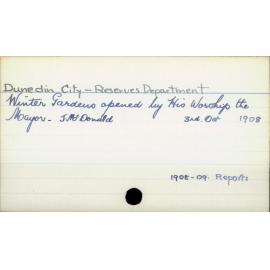 Dunedin City - Reserves Department
Winter Gardens opened by His Worship the
Mayor - J. McDonald 3rd. Oct 1908
1908-09. Reports